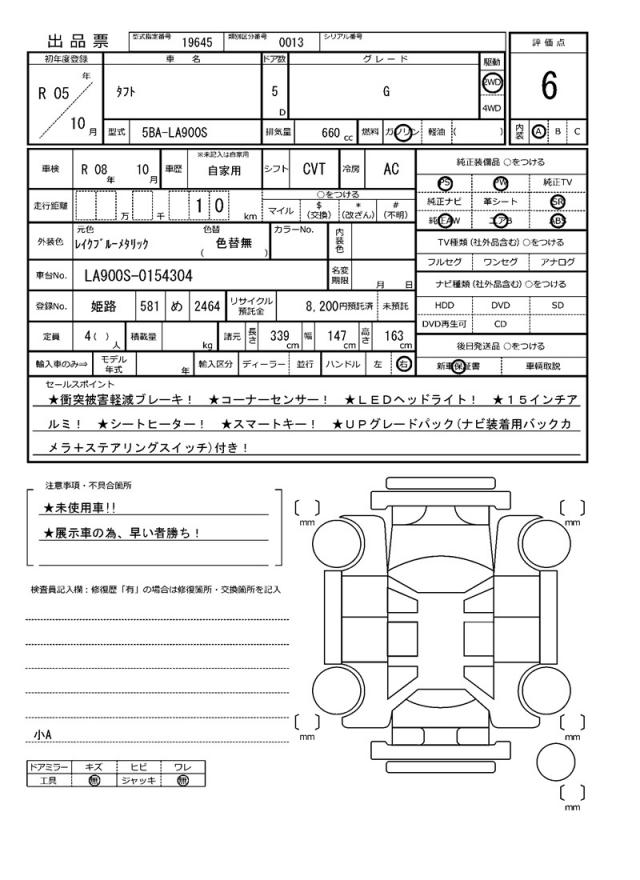 出品票
型式指定番号 19645 類別区分番号 0013 シリアル番号
初年度登録 車名 ドア数 グレード 駆動 評価点
R 05 年 10 月
タフト 5 D G 2WD 4WD
6
型式 5BA-LA900S 排気量 660 cc 燃料 ガソリン 軽油 ( )
内装 A B C
車検 R 08 年 10 月 車歴 ※未記入は自家用 自家用 シフト CVT 冷房 AC
走行距離 万 千 1 0 km
○をつける
マイル $ (交換) * (改ざん) # (不明)
外装色 元色 レイクブルーメタリック 色替 ( 色替無 ) カラーNo. 内装色
車台No. LA900S-0154304 名変期限 月 日
登録No. 姫路 581 め 2464 リサイクル預託金 8,200円預託済 未預託
定員 4( ) 人 積載量 kg 諸元 長さ 339 cm 幅 147 cm 高さ 163 cm
輸入車のみ⇒ モデル年式 年 輸入区分 ディーラー 並行 ハンドル 左 右
純正装備品 ○をつける
PS PW 純正TV
純正ナビ 革シート SR
純正AW エアB ABS
TV種類(社外品含む)○をつける
フルセグ ワンセグ アナログ
ナビ種類(社外品含む)○をつける
HDD DVD SD
DVD再生可 CD
後日発送品 ○をつける
新車保証書 車輌取説
セールスポイント
★衝突被害軽減ブレーキ！ ★コーナーセンサー！ ★ＬＥＤヘッドライト！ ★１５インチア
ルミ！ ★シートヒーター！ ★スマートキー！ ★ＵＰグレードパック(ナビ装着用バックカ
メラ＋ステアリングスイッチ)付き！
注意事項・不具合箇所
★未使用車!!
★展示車の為、早い者勝ち！
検査員記入欄：修復歴「有」の場合は修復箇所・交換箇所を記入
小A
ドアミラー キズ ヒビ ワレ
工具 無 ジャッキ 無
[ ] mm
[ ] mm
[ ] mm
[ ] mm
[ ] mm